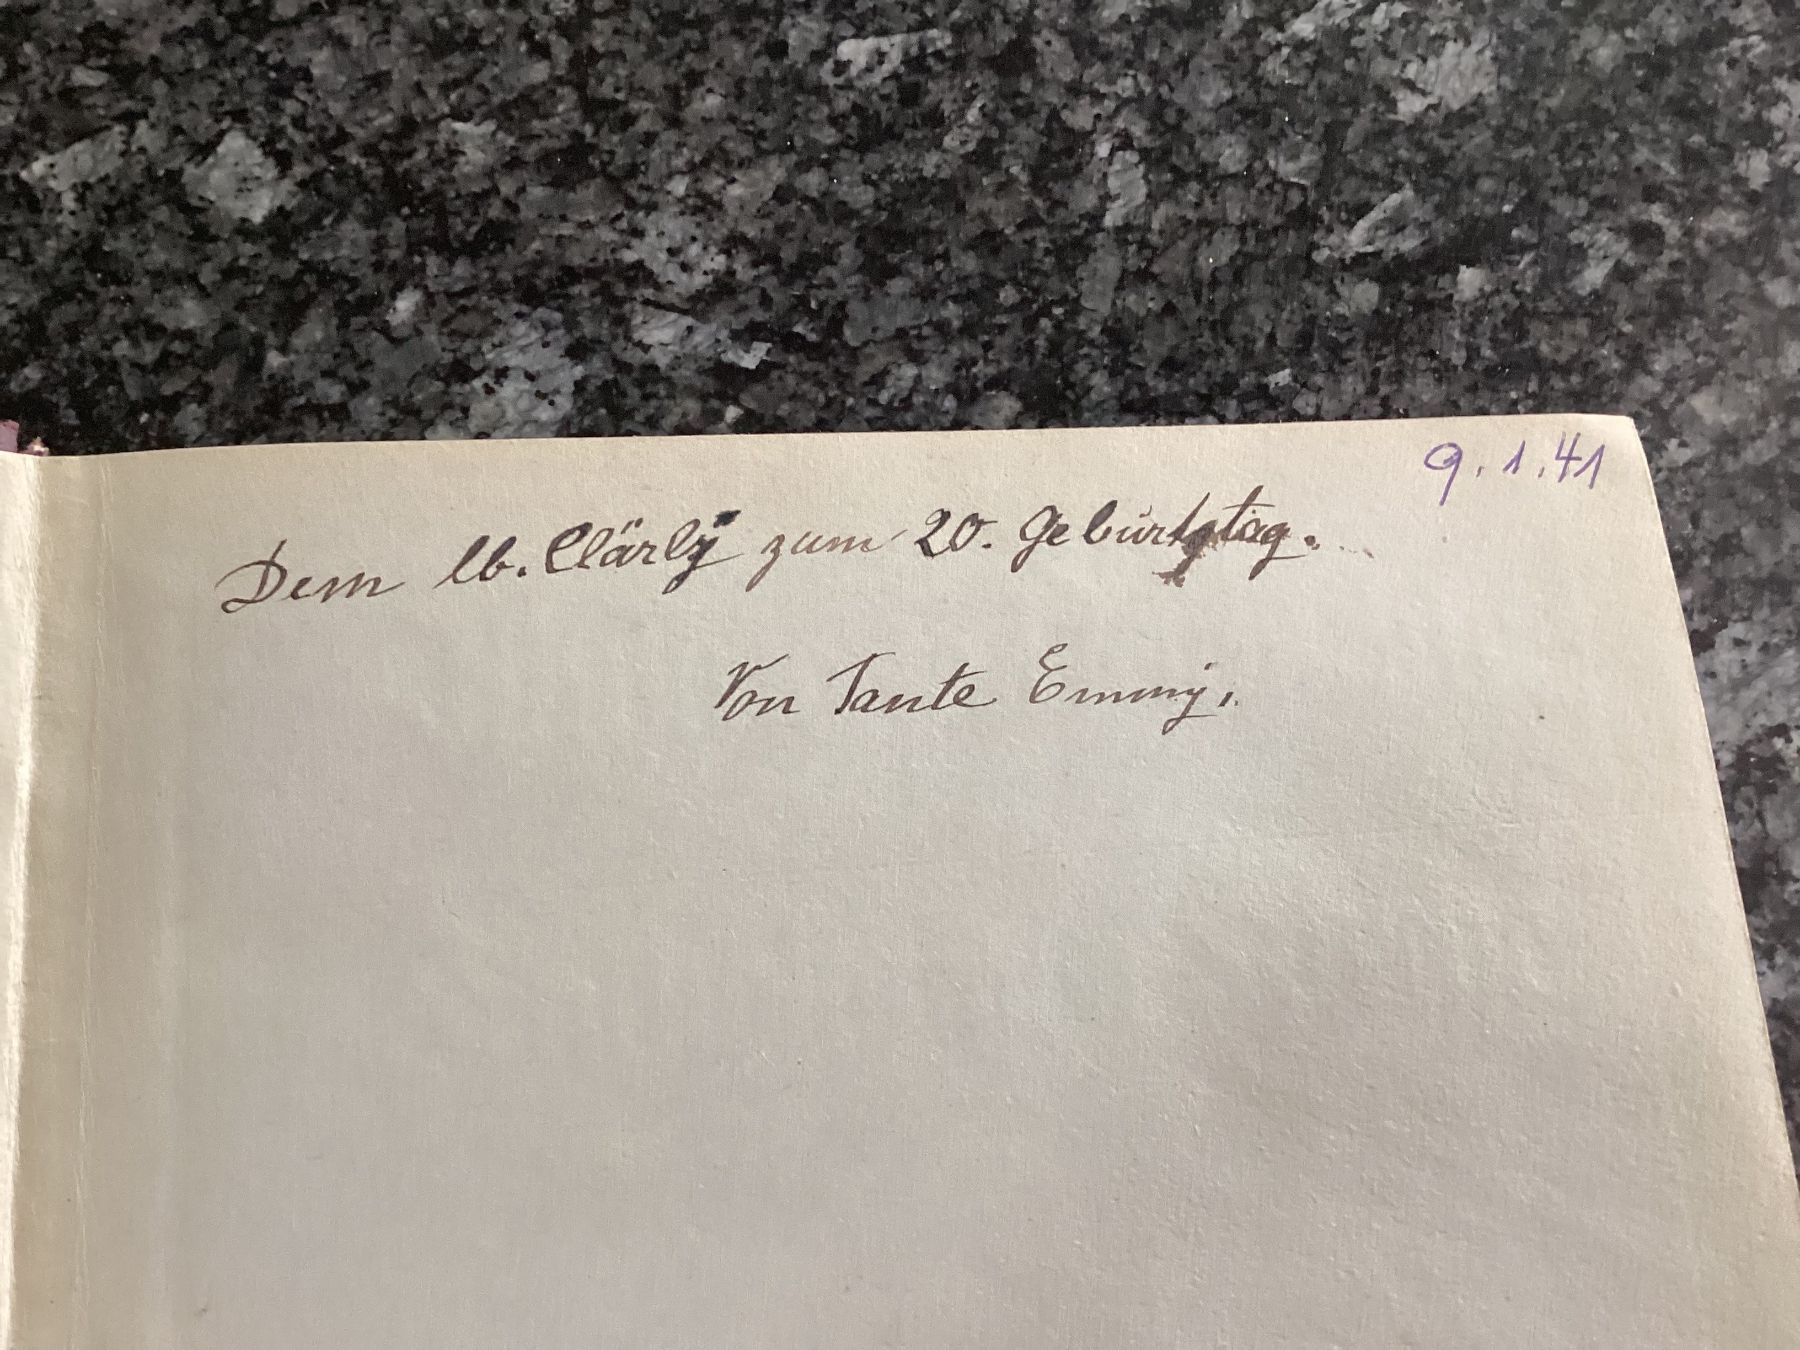 9.1.41
Dem lb. Clärly zum 20. Geburtstag.
Von Tante Emmy.